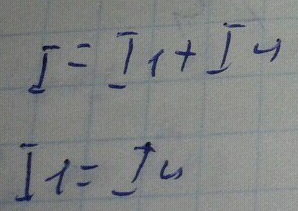 I = I1 + I4
I1 = I4